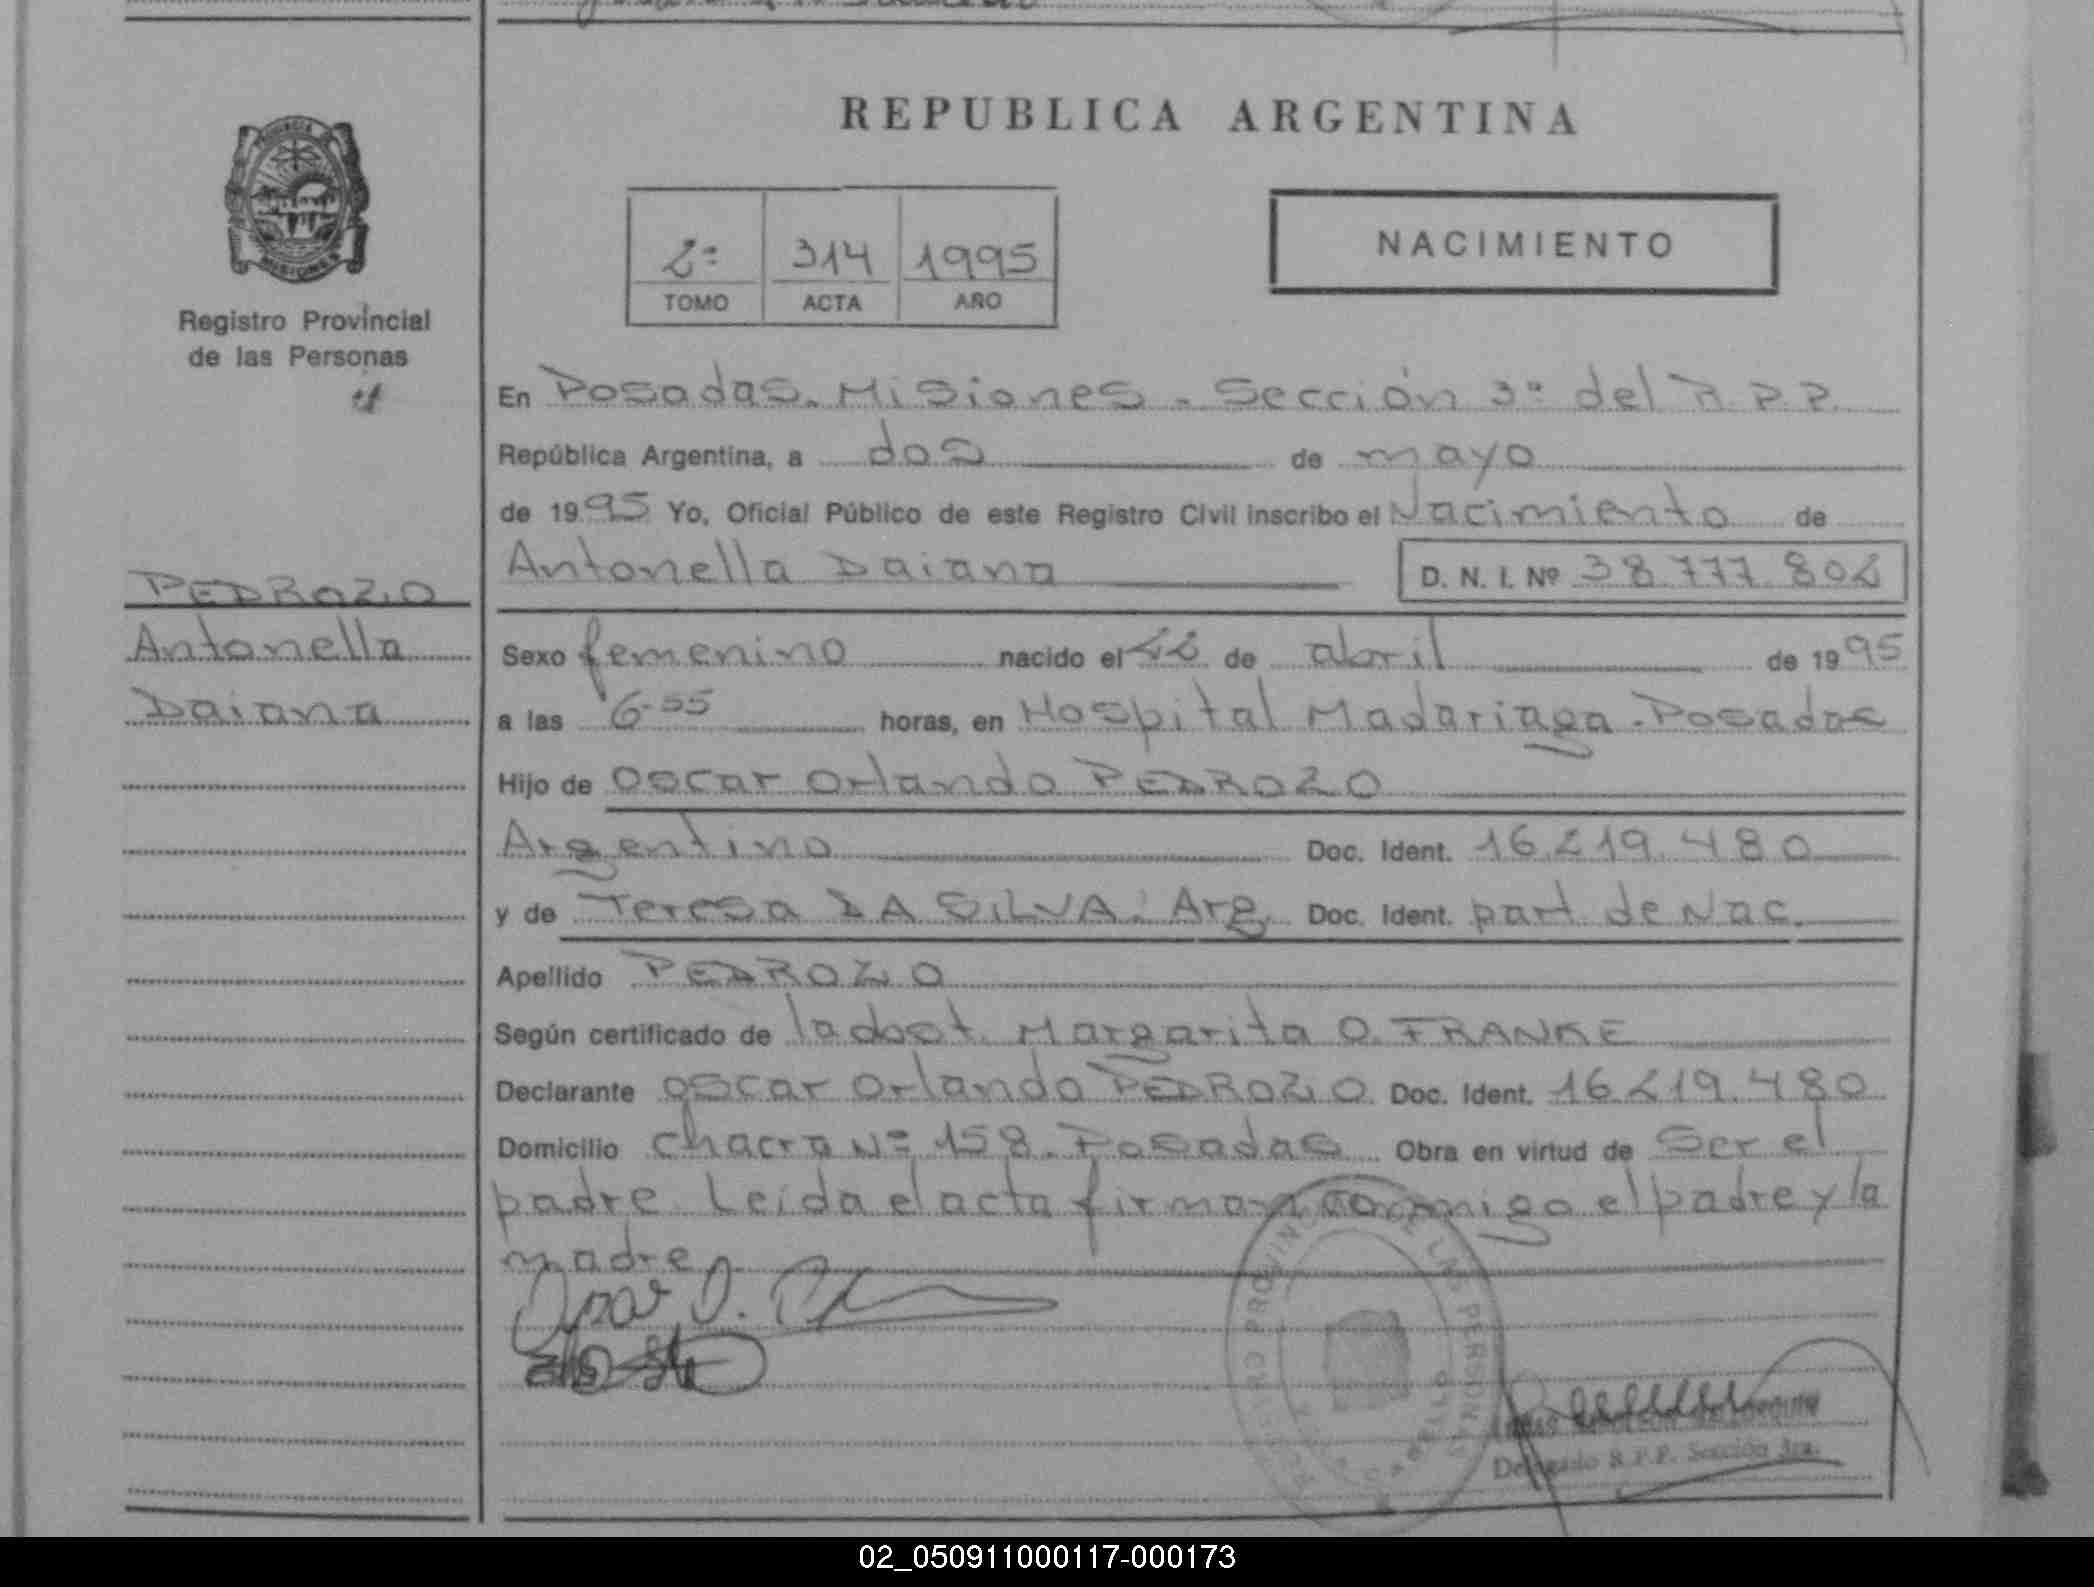 REPUBLICA ARGENTINA
2º 314 1995
TOMO ACTA AÑO
NACIMIENTO
MISIONES
Registro Provincial
de las Personas
En Posadas. Misiones - Sección 3ª del R.P.P.
República Argentina, a dos de mayo
de 1995 Yo, Oficial Público de este Registro Civil inscribo el Nacimiento de
Antonella Daiana D. N. I. Nº 38.777.802
PEDROZO
Antonella
Daiana
Sexo femenino nacido el 22 de abril de 1995
a las 6-55 horas, en Hospital Madariaga - Posadas
Hijo de Oscar Orlando PEDROZO
Argentino Doc. Ident. 16.219.480
y de Teresa DA SILVA. Arg. Doc. Ident. part. de Nac.
Apellido PEDROZO
Según certificado de la obst. Margarita O. FRANKE
Declarante Oscar Orlando PEDROZO Doc. Ident. 16.219.480
Domicilio Chacra Nº 158. Posadas Obra en virtud de Ser el
padre. Leída el acta firman conmigo el padre y la
madre
Oscar O.
Delegado R.P.P. Sección 3ra.
02_050911000117-000173